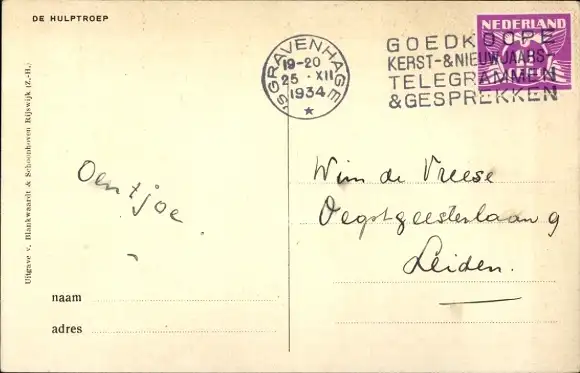 DE HULPTROEP
NEDERLAND
'S GRAVENHAGE
19-20
25 · XII
1934
GOEDKOOPE
KERST- & NIEUWJAARS-
TELEGRAMMEN
& GESPREKKEN
Wim de Vreese
Oegstgeesterlaan 9
Leiden.
naam
adres
Uitgave v. Blankwaardt & Schoonhoven Rijswijk (Z.-H.)